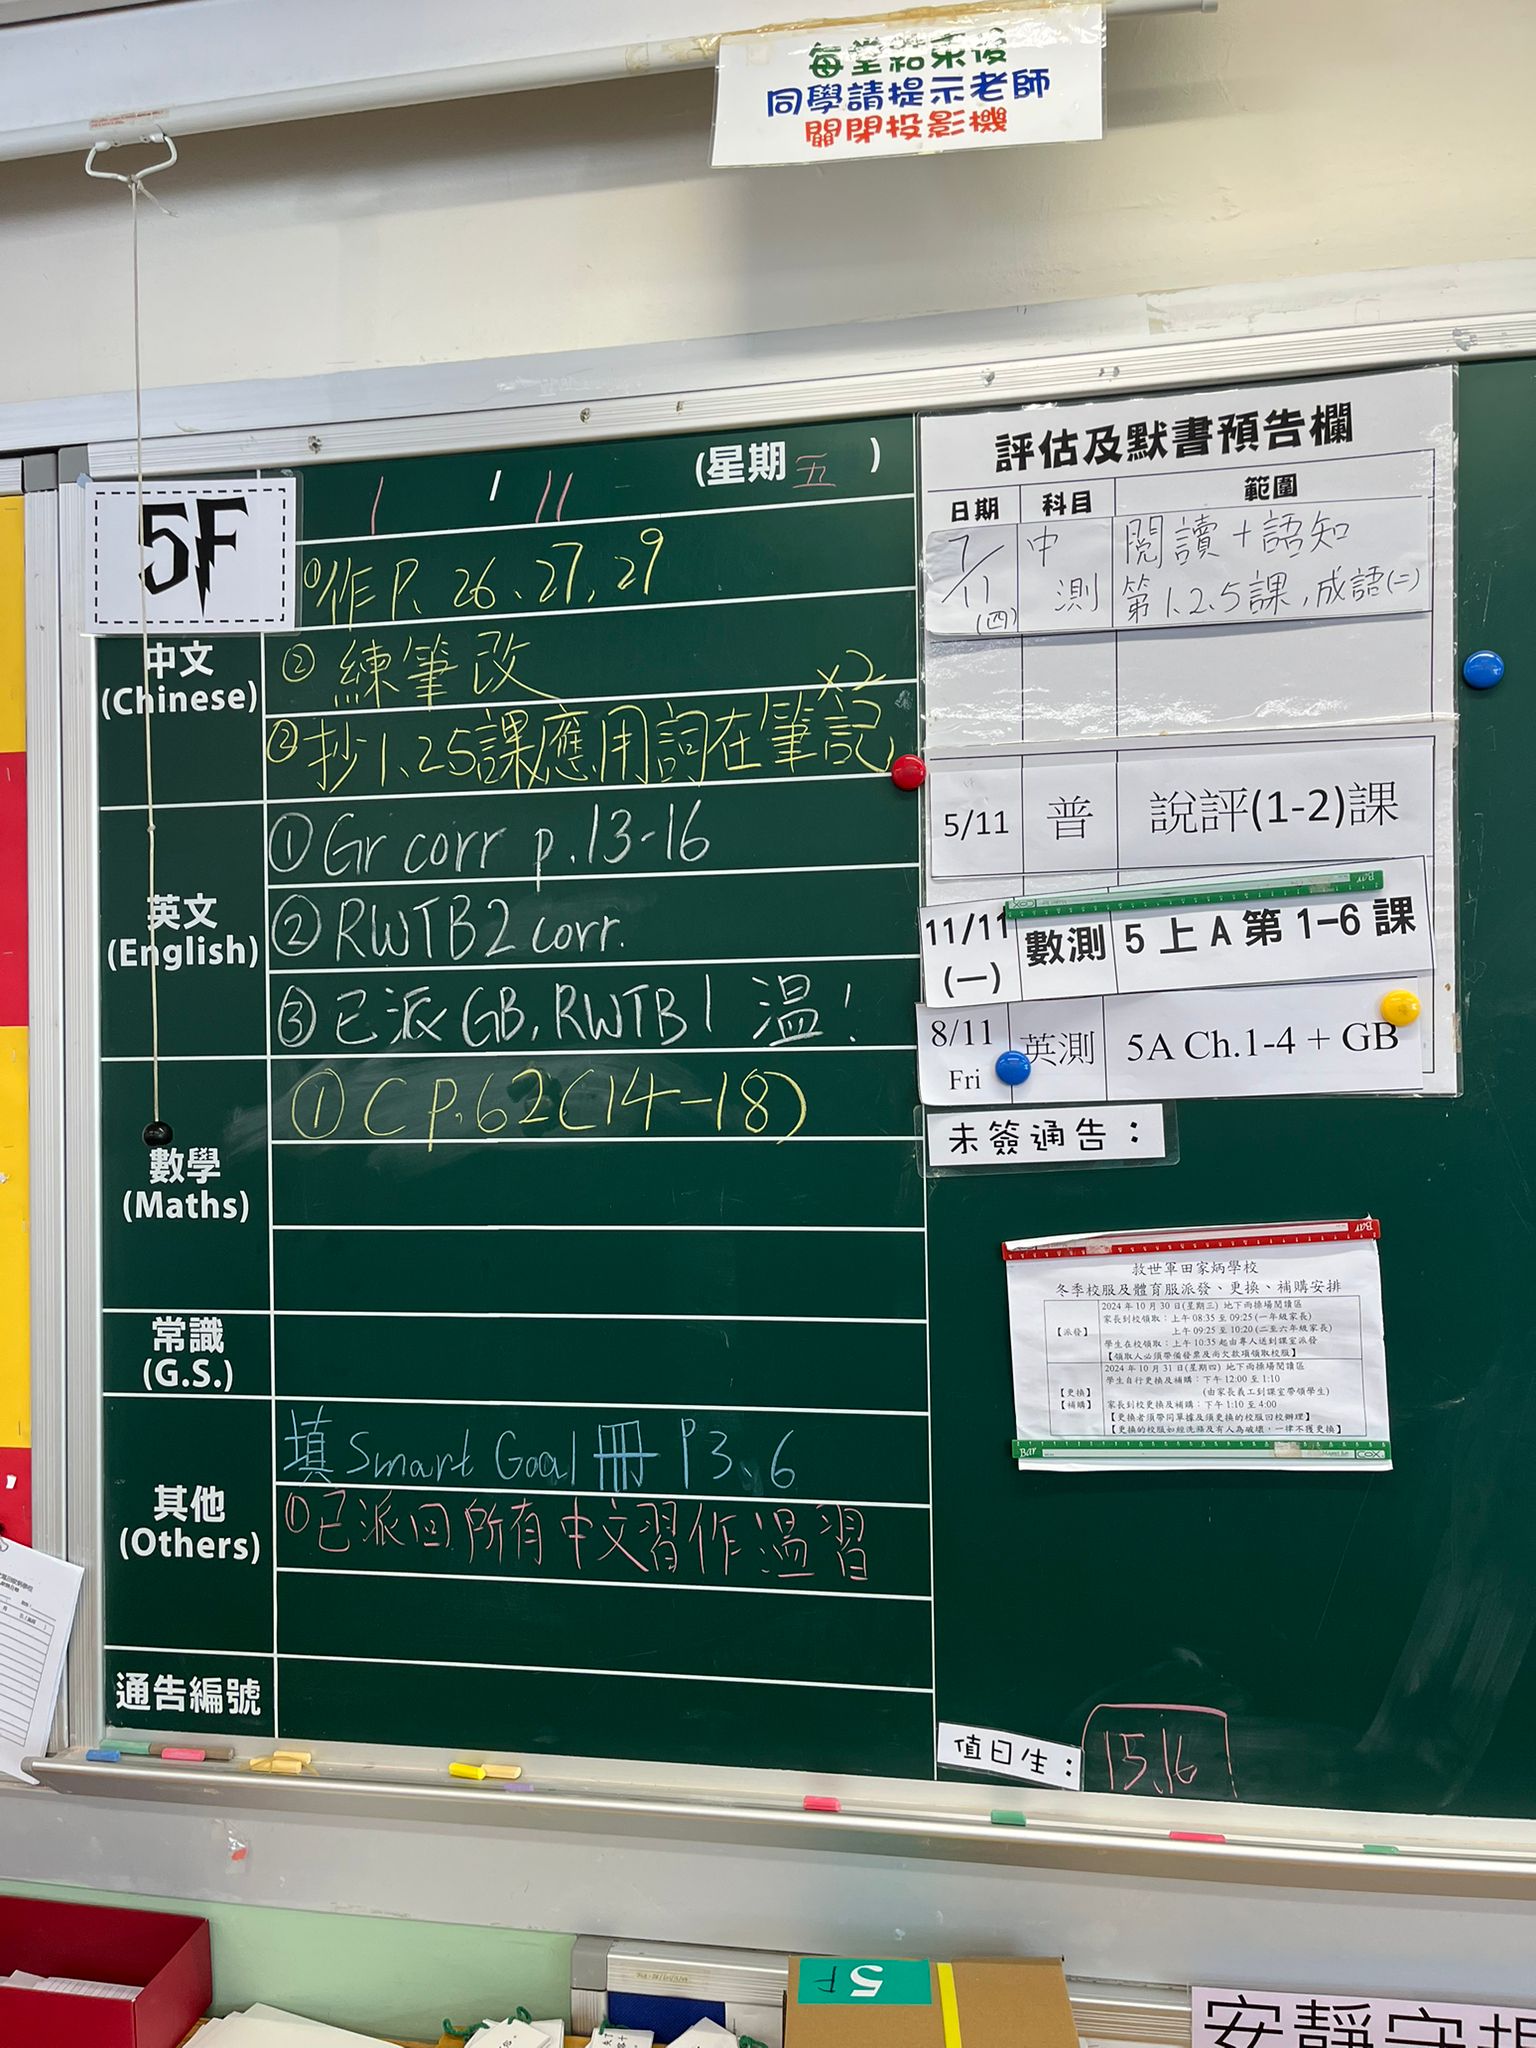 每堂結束後
同學請提示老師
關閉投影機
5F
1 / 11 (星期五)
中文
(Chinese)
①作P. 26、27、29
② 練筆改
②抄1、2、5課應用詞在筆記 x2
英文
(English)
① Gr corr p.13-16
② RWTB2 corr.
③ 已派 GB, RWTB1 溫!
數學
(Maths)
① C p.62(14-18)
常識
(G.S.)
其他
(Others)
填 Smart Goal 冊 P3、6
①已派回所有中文習作溫習
通告編號
評估及默書預告欄
日期 科目 範圍
7/11 (四) 中測 閱讀+語知
第1、2、5課,成語(二)
5/11 普 說評(1-2)課
11/11 (一) 數測 5上A第1-6課
8/11 Fri 英測 5A Ch.1-4 + GB
未簽通告:
救世軍田家炳學校
冬季校服及體育服派發、更換、補購安排
【派發】
2024年10月30日(星期三) 地下雨操場閱讀區
家長到校領取:上午08:35至09:25(一年級家長)
上午09:25至10:20(二至六年級家長)
學生在校領取:上午10:35起由專人送到課室派發
【領取人必須帶備發票及尚欠款項領取校服】
【更換】
【補購】
2024年10月31日(星期四) 地下雨操場閱讀區
學生自行更換及補購:下午12:00至1:10
(由家長義工到課室帶領學生)
家長到校更換及補購:下午1:10至4:00
【更換者須帶同單據及須更換的校服回校辦理】
【更換的校服如經洗滌及有人為破壞,一律不獲更換】
值日生: 15、16
5F
安靜守